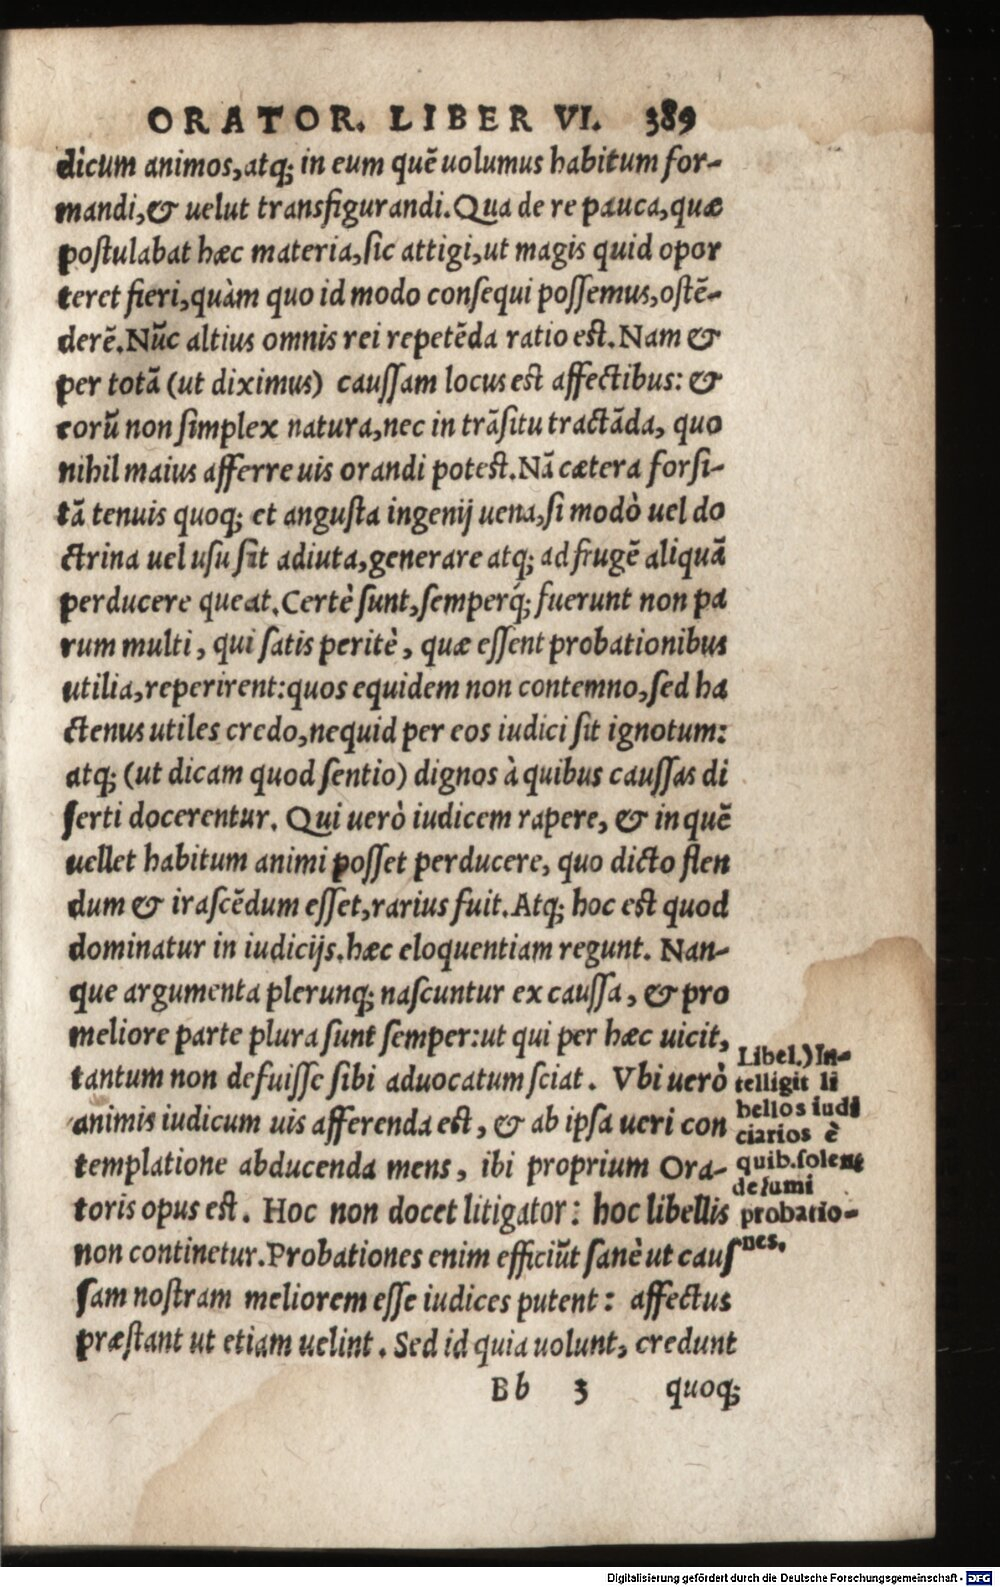 ORATOR. LIBER VI. 389
dicum animos, atq; in eum quē uolumus habitum for-
mandi, & uelut transfigurandi. Qua de re pauca, quæ
postulabat hæc materia, sic attigi, ut magis quid opor
teret fieri, quàm quo id modo consequi possemus, ostē-
derē. Nūc altius omnis rei repetēda ratio est. Nam &
per totā (ut diximus) caussam locus est affectibus: &
eorū non simplex natura, nec in trāsitu tractāda, quo
nihil maius afferre uis orandi potest. Nā cætera forsi-
tā tenuis quoq; et angusta ingenij uena, si modò uel do
ctrina uel usu sit adiuta, generare atq; ad frugē aliquā
perducere queat. Certè sunt, semperq́; fuerunt non pa
rum multi, qui satis peritè, quæ essent probationibus
utilia, reperirent: quos equidem non contemno, sed ha
ctenus utiles credo, nequid per eos iudici sit ignotum:
atq; (ut dicam quod sentio) dignos à quibus caussas di
serti docerentur. Qui uerò iudicem rapere, & in quē
uellet habitum animi posset perducere, quo dicto flen
dum & irascēdum esset, rarius fuit. Atq; hoc est quod
dominatur in iudicijs. hæc eloquentiam regunt. Nan-
que argumenta plerunq; nascuntur ex caussa, & pro
meliore parte plura sunt semper: ut qui per hæc uicit,
tantum non defuisse sibi aduocatum sciat. Vbi uerò
animis iudicum uis afferenda est, & ab ipsa ueri con
templatione abducenda mens, ibi proprium Ora-
toris opus est. Hoc non docet litigator: hoc libellis
non continetur. Probationes enim efficiūt sanè ut caus
sam nostram meliorem esse iudices putent: affectus
præstant ut etiam uelint. Sed id quia uolunt, credunt
Bb 3 quoq;
Libel.) In-
telligit li
bellos iudi
ciarios è
quib. solent
desumi
probatio-
nes.
Digitalisierung gefördert durch die Deutsche Forschungsgemeinschaft - DFG